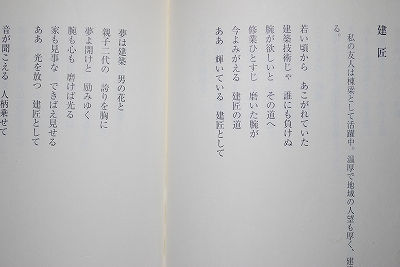 建匠
私の友人は棟梁として活躍中。温厚で地域の人望も厚く、建
る。
若い頃から あこがれていた
建築技術じゃ 誰にも負けぬ
腕が欲しいと その道へ
修業ひとすじ 磨いた腕が
今よみがえる 建匠の道
ああ 輝いている 建匠として
夢は建築 男の花と
親子二代の 誇りを胸に
夢と開けと 励みゆく
腕も心も 磨けば光る
家も見事な できばえ見せる
ああ 光を放つ 建匠として
音が聞こえる 人柄乗せて